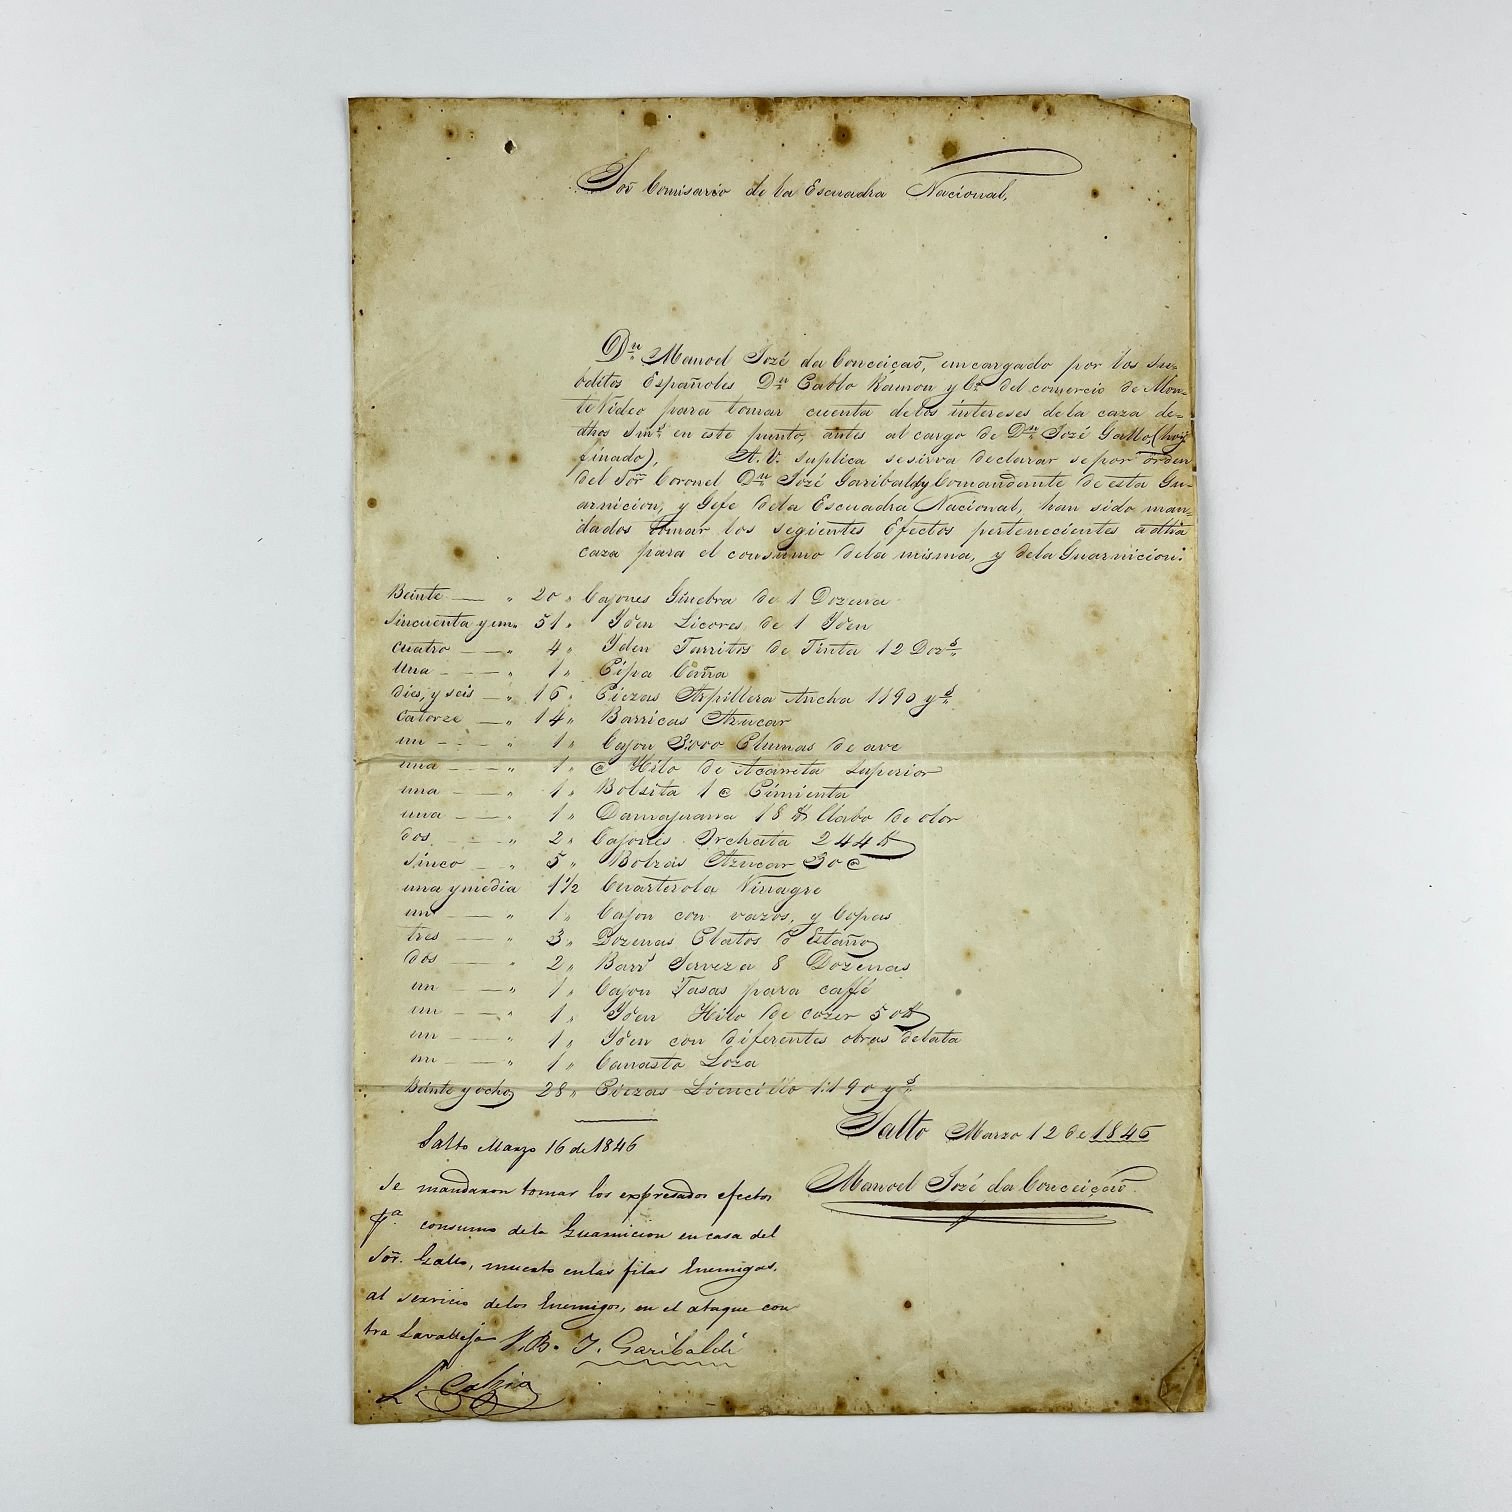 Sor̃ Comisario de la Escuadra Nacional,
Dn Manoel Jozé da Conceiçaõ, emcargado por los su-
bditos Españoles Dn Pablo Ramon y Ca del comercio de Mon-
teVideo para tomar cuenta delos intereses dela caza de-
dhos Smrs en este punto, antes al cargo de Dn Jozé Gallo, (hoy
finado), A.V. suplica sesirva declarar sepor orden
del Sor̃ Coronel Dn Jozé Garibaldy Comandante de esta Gu-
arnicion, y Gefe dela Escuadra Nacional, han sido man-
dados tomar los segientes Efectos pertenecientes adha
caza para el consumo dela misma, y dela Guarnicion:
Beinte — " 20 " Cajones Ginebra de 1 Dozena
Sincuenta y un " 51 " Yden Licores de 1 Yden
cuatro — " 4 " Yden Tarritos de Tinta 12 Dozs
Una — " 1 " Pipa Caña
dies, y seis — " 16 " Piezas Arpillera Ancha 1190 yds
Catorze — " 14 " Barricas Azucar
un — " 1 " Cajon 3000 Plumas de ave
una — " 1 " @ Hilo de Acarreta Superior
una — " 1 " Bolsita 1 @ Pimienta
una — " 1 " Damajuana 18 ℔ Clabo de olor
dos — " 2 " Cajones Orchata 244 ℔
Sinco — " 5 " Bolzas Azucar 30 @
una ymedia 1 1/2 Cuarterola Vinagre
un — " 1 " Cajon con vazos, y Copas
tres — " 3 " Dozenas Platos d Estaño
dos — " 2 " Barrs Serveza 8 Dozenas
un — " 1 " Cajon Tasas para caffé
un — " 1 " Yden Hilo de cozer 50 ℔
un — " 1 " Yden con diferentes obras delata
un — " 1 " Canasto Loza
Beinte y ocho 28 " Piezas Liencillo 1:190 yds
Salto Marzo 12 de 1846
Manoel Jozé da Conceiçaõ
Salto Marzo 16 de 1846
Se mandaron tomar los expresados efectos
pa. consumo dela Guarnicion en casa del
Sor̃. Gallo, muerto enlas filas Enemigas,
al servicio delos Enemigos, en el ataque con
tra Lavalleja V.B. J. Garibaldi
L. Calzia